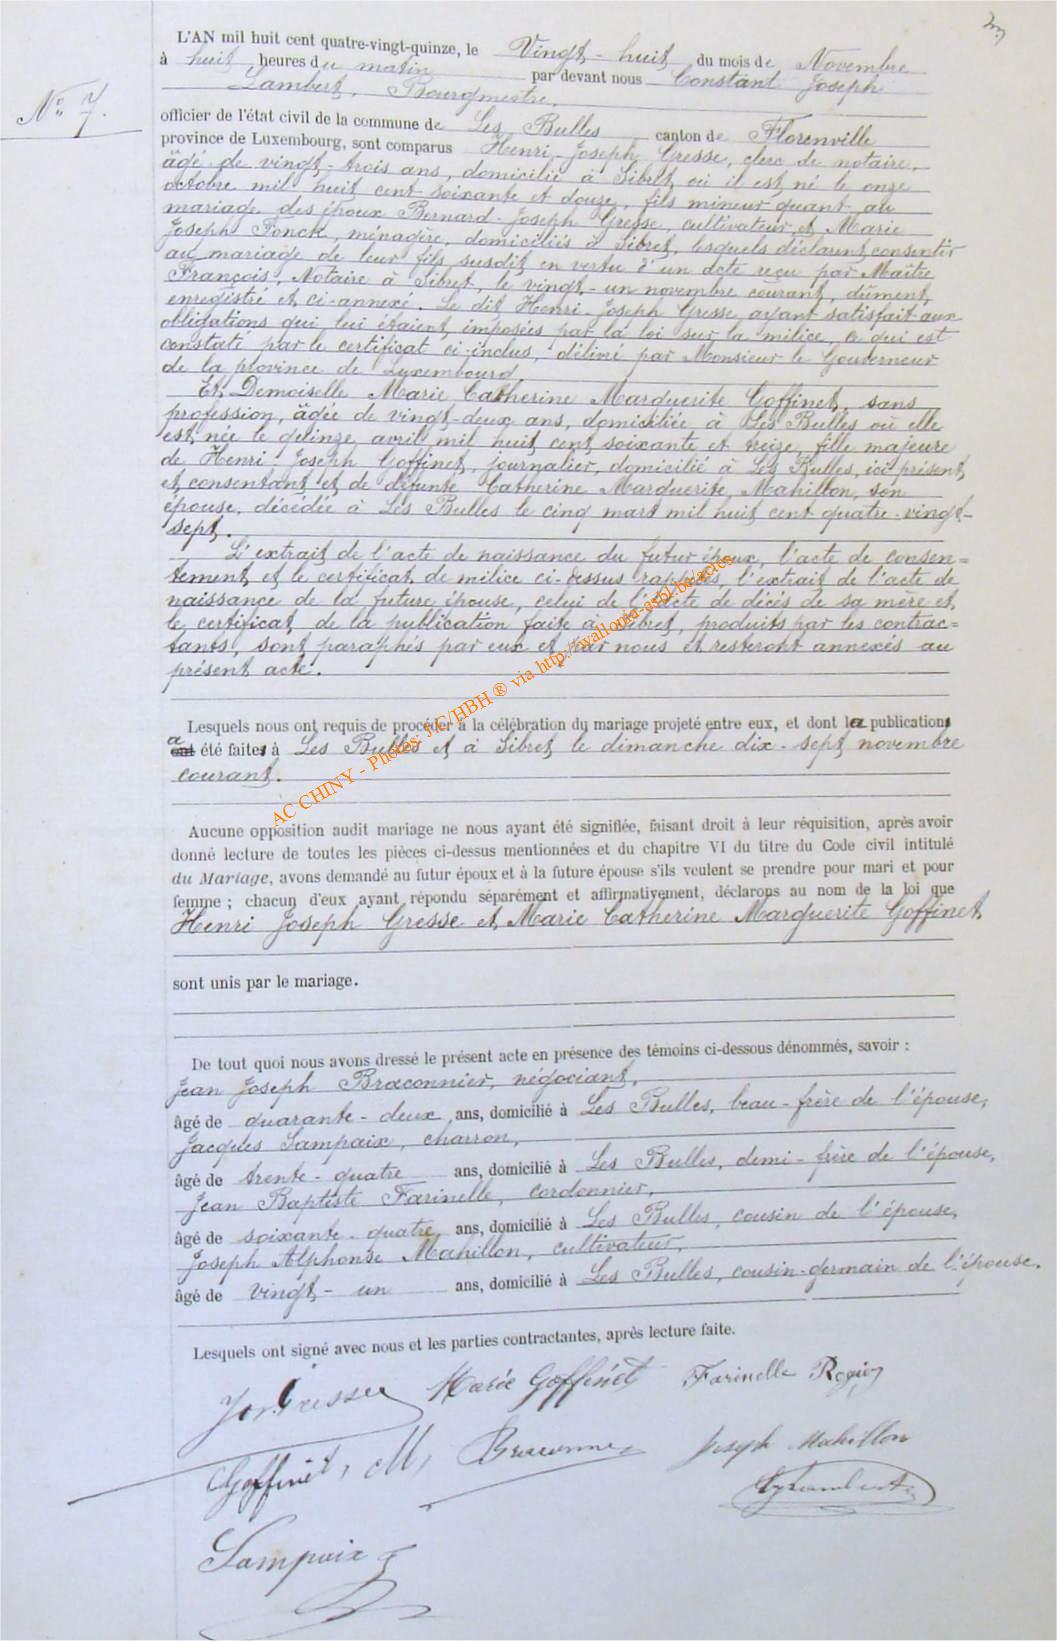 L'AN mil huit cent quatre-vingt-quinze, le Vingt-huit du mois de Novembre
à huit heures du matin par devant nous Constant Joseph
Lambert, Bourgmestre,
Nº 7.
officier de l'état civil de la commune de Les Bulles canton de Florenville
province de Luxembourg, sont comparus Henri-Joseph Gresse, clerc de notaire,
âgé de vingt-trois ans, domicilié à Sibret où il est né le onze
octobre mil huit cent-soixante et douze, fils mineur quant au
mariage des époux Bernard-Joseph Gresse, cultivateur et Marie
Joseph Fonck, ménagère, domiciliés à Sibret, lesquels déclarent consentir
au mariage de leur fils susdit en vertu d'un acte reçu par Maître
François, Notaire à Sibret, le vingt-un novembre courant, dûment
enregistré et ci-annexé. Le dit Henri-Joseph Gresse ayant satisfait aux
obligations qui lui étaient imposées par la loi sur la milice, ce qui est
constaté par le certificat ci-inclus, délivré par Monsieur le Gouverneur
de la province de Luxembourg
Et Demoiselle Marie Catherine Marguerite Goffinet, sans
profession, âgée de vingt-deux ans, domiciliée à Les Bulles où elle
est née le quinze avril mil huit cent soixante et treize, fille majeure
de Henri Joseph Goffinet, journalier, domicilié à Les Bulles, ici présent
et consentant et de défunte Catherine Marguerite Mahillon, son
épouse, décédée à Les Bulles le cinq mars mil huit cent quatre-vingt-
sept.
L'extrait de l'acte de naissance du futur époux, l'acte de consen=
tement et le certificat de milice ci-dessus rappelés, l'extrait de l'acte de
naissance de la future épouse, celui de l'acte de décès de sa mère et
le certificat de la publication faite à Sibret, produits par les contrac=
tants, sont paraphés par eux et par nous et resteront annexés au
présent acte.
Lesquels nous ont requis de procéder à la célébration du mariage projeté entre eux, et dont la publication
a été faite à Les Bulles et à Sibret le dimanche dix-sept novembre
courant.
AC CHINY - Photos: J.C/HBH ® via http://wallonia-asbl.be/actes
Aucune opposition audit mariage ne nous ayant été signifiée, faisant droit à leur réquisition, après avoir
donné lecture de toutes les pièces ci-dessus mentionnées et du chapitre VI du titre du Code civil intitulé
du Mariage, avons demandé au futur époux et à la future épouse s'ils veulent se prendre pour mari et pour
femme ; chacun d'eux ayant répondu séparément et affirmativement, déclarons au nom de la loi que
Henri Joseph Gresse et Marie Catherine Marguerite Goffinet
sont unis par le mariage.
De tout quoi nous avons dressé le présent acte en présence des témoins ci-dessous dénommés, savoir :
Jean Joseph Braconnier, négociant,
âgé de quarante-deux ans, domicilié à Les Bulles, beau-frère de l'épouse,
Jacques Lampaix, charron,
âgé de trente-quatre ans, domicilié à Les Bulles, demi-frère de l'épouse,
Jean Baptiste Farinelle, cordonnier,
âgé de soixante-quatre ans, domicilié à Les Bulles, cousin de l'épouse,
Joseph Alphonse Mahillon, cultivateur,
âgé de vingt-un ans, domicilié à Les Bulles, cousin-germain de l'épouse.
Lesquels ont signé avec nous et les parties contractantes, après lecture faite.
Gresse Marie Goffinet Farinelle
Goffinet, M, Braconnier Joseph Mahillon
Lampaix